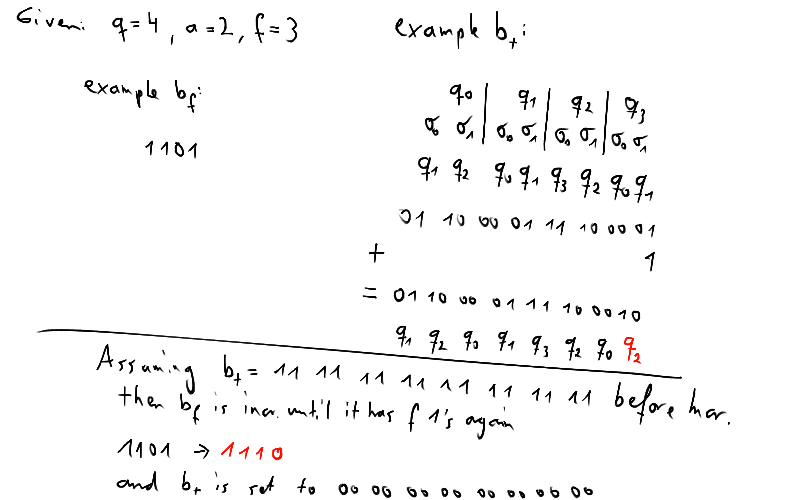 Given: q=4, a=2, f=3
example b_f:
1101
example b_t:
q0 | q1 | q2 | q3
σ0 σ1 | σ0 σ1 | σ0 σ1 | σ0 σ1
q1 q2 q0 q1 q3 q2 q0 q1
01 10 00 01 11 10 00 01
+ 1
= 01 10 00 01 11 10 00 10
q1 q2 q0 q1 q3 q2 q0 q2
Assuming b_t = 11 11 11 11 11 11 11 11 before incr.
then b_f is incr. until it has f 1's again
1101 → 1110
and b_t is set to 00 00 00 00 00 00 00 00